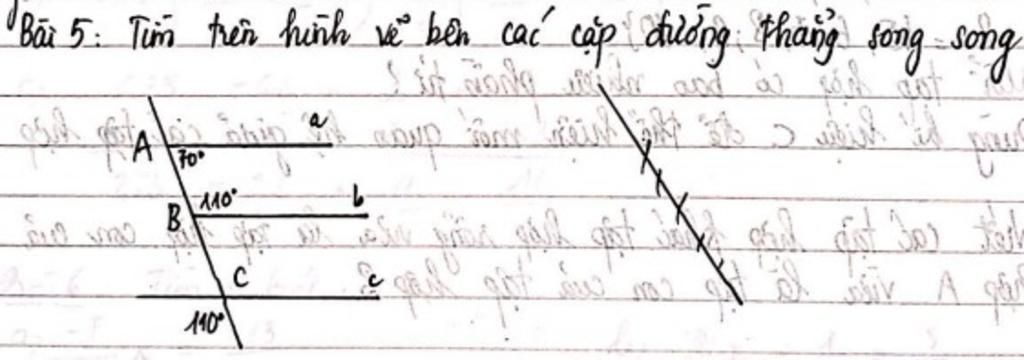 Bài 5: Tìm trên hình vẽ bên các cặp đường thẳng song song
A 70° a
B 110° b
C c
110°